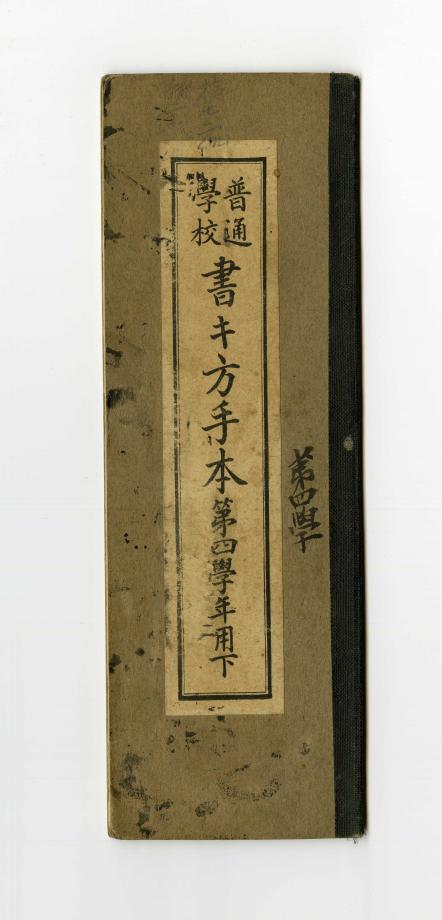 普通
學校
書キ方手本第四學年用下
第四學